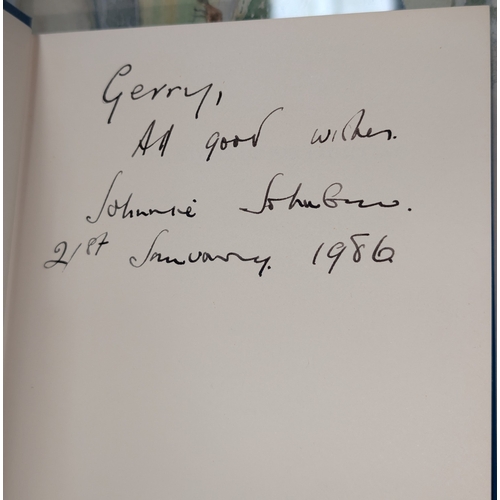 Gerry,
All good wishes.
Johnnie Johnson.
21st January. 1986